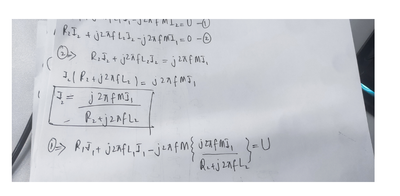 jωL₁I₁ - j2πfMI₂ = U -①
R₂I₂ + j2πfL₂I₂ - j2πfMI₁ = 0 -②
②⇒ R₂I₂ + j2πfL₂I₂ = j2πfMI₁
I₂(R₂ + j2πfL₂) = j2πfMI₁
I₂ = j2πfMI₁ / R₂ + j2πfL₂
①⇒ R₁I₁ + j2πfL₁I₁ - j2πfM { j2πfMI₁ / R₂ + j2πfL₂ } = U